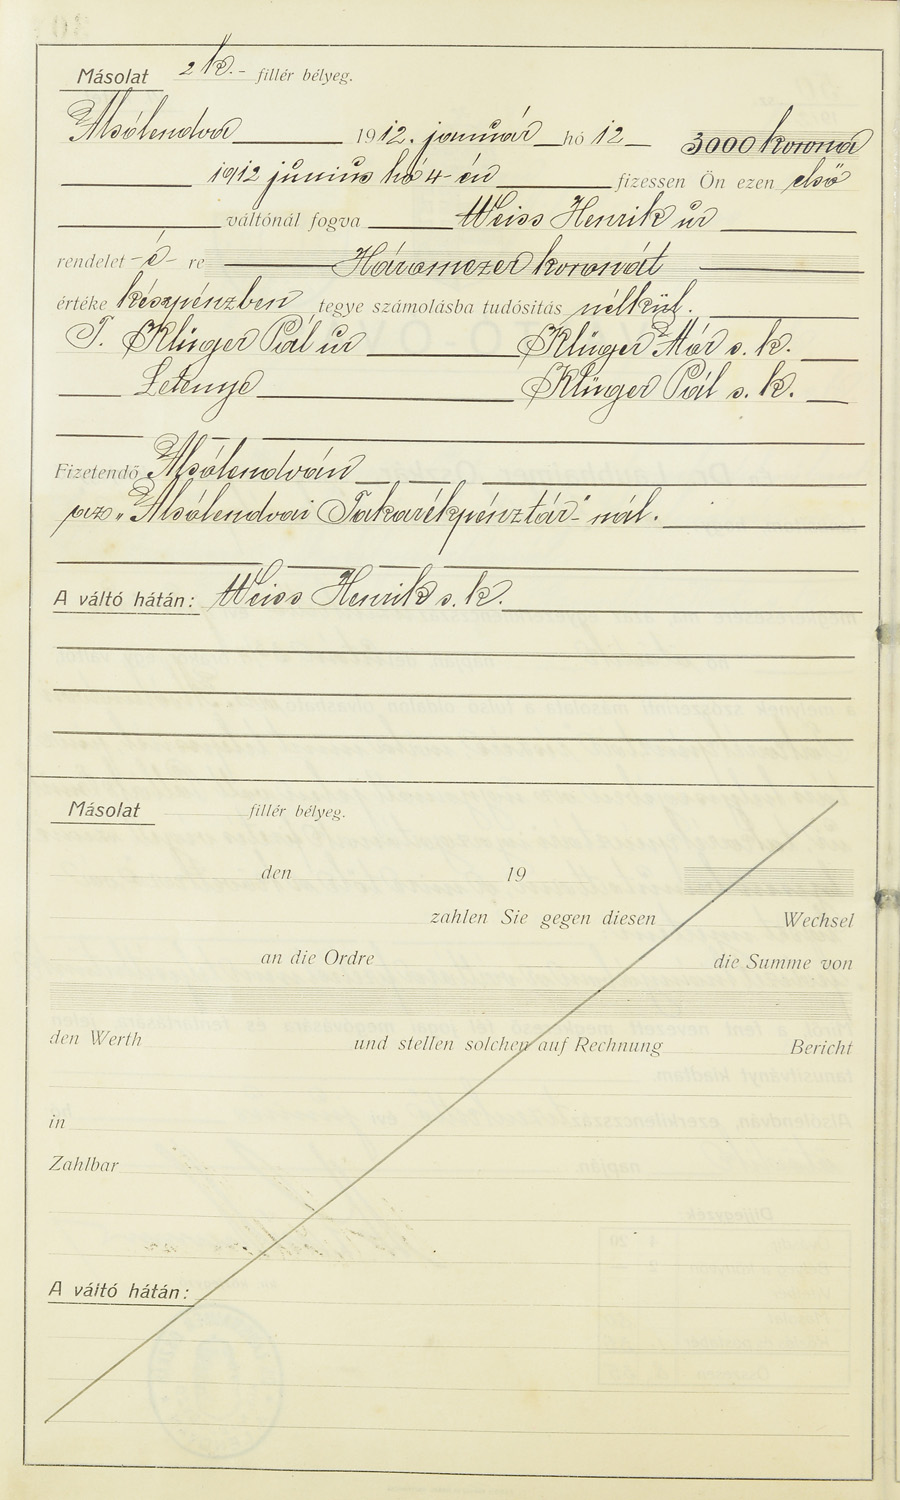 Másolat 2 K.- fillér bélyeg.
Alsólendva 1912. január hó 12 3000 korona
1912 június hó 4-én fizessen Ön ezen első
váltónál fogva Weiss Henrik úr
rendelet -é- re Háromezer koronát
értéke készpénzben tegye számolásba tudósítás nélkül.
T. Klinger Pál úr Klinger Mór s. k.
Letenye Klinger Pál s. k.
Fizetendő Alsólendván
az „Alsólendvai Takarékpénztár"-nál.
A váltó hátán: Weiss Henrik s. k.
Másolat fillér bélyeg.
den 19
zahlen Sie gegen diesen Wechsel
an die Ordre die Summe von
den Werth und stellen solchen auf Rechnung Bericht
in
Zahlbar
A váltó hátán: